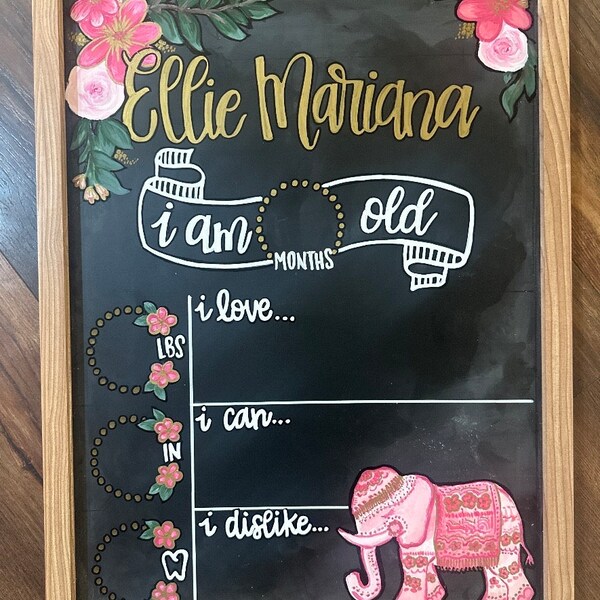 Ellie Mariana
i am old
MONTHS
i love...
LBS
i can...
IN
i dislike...